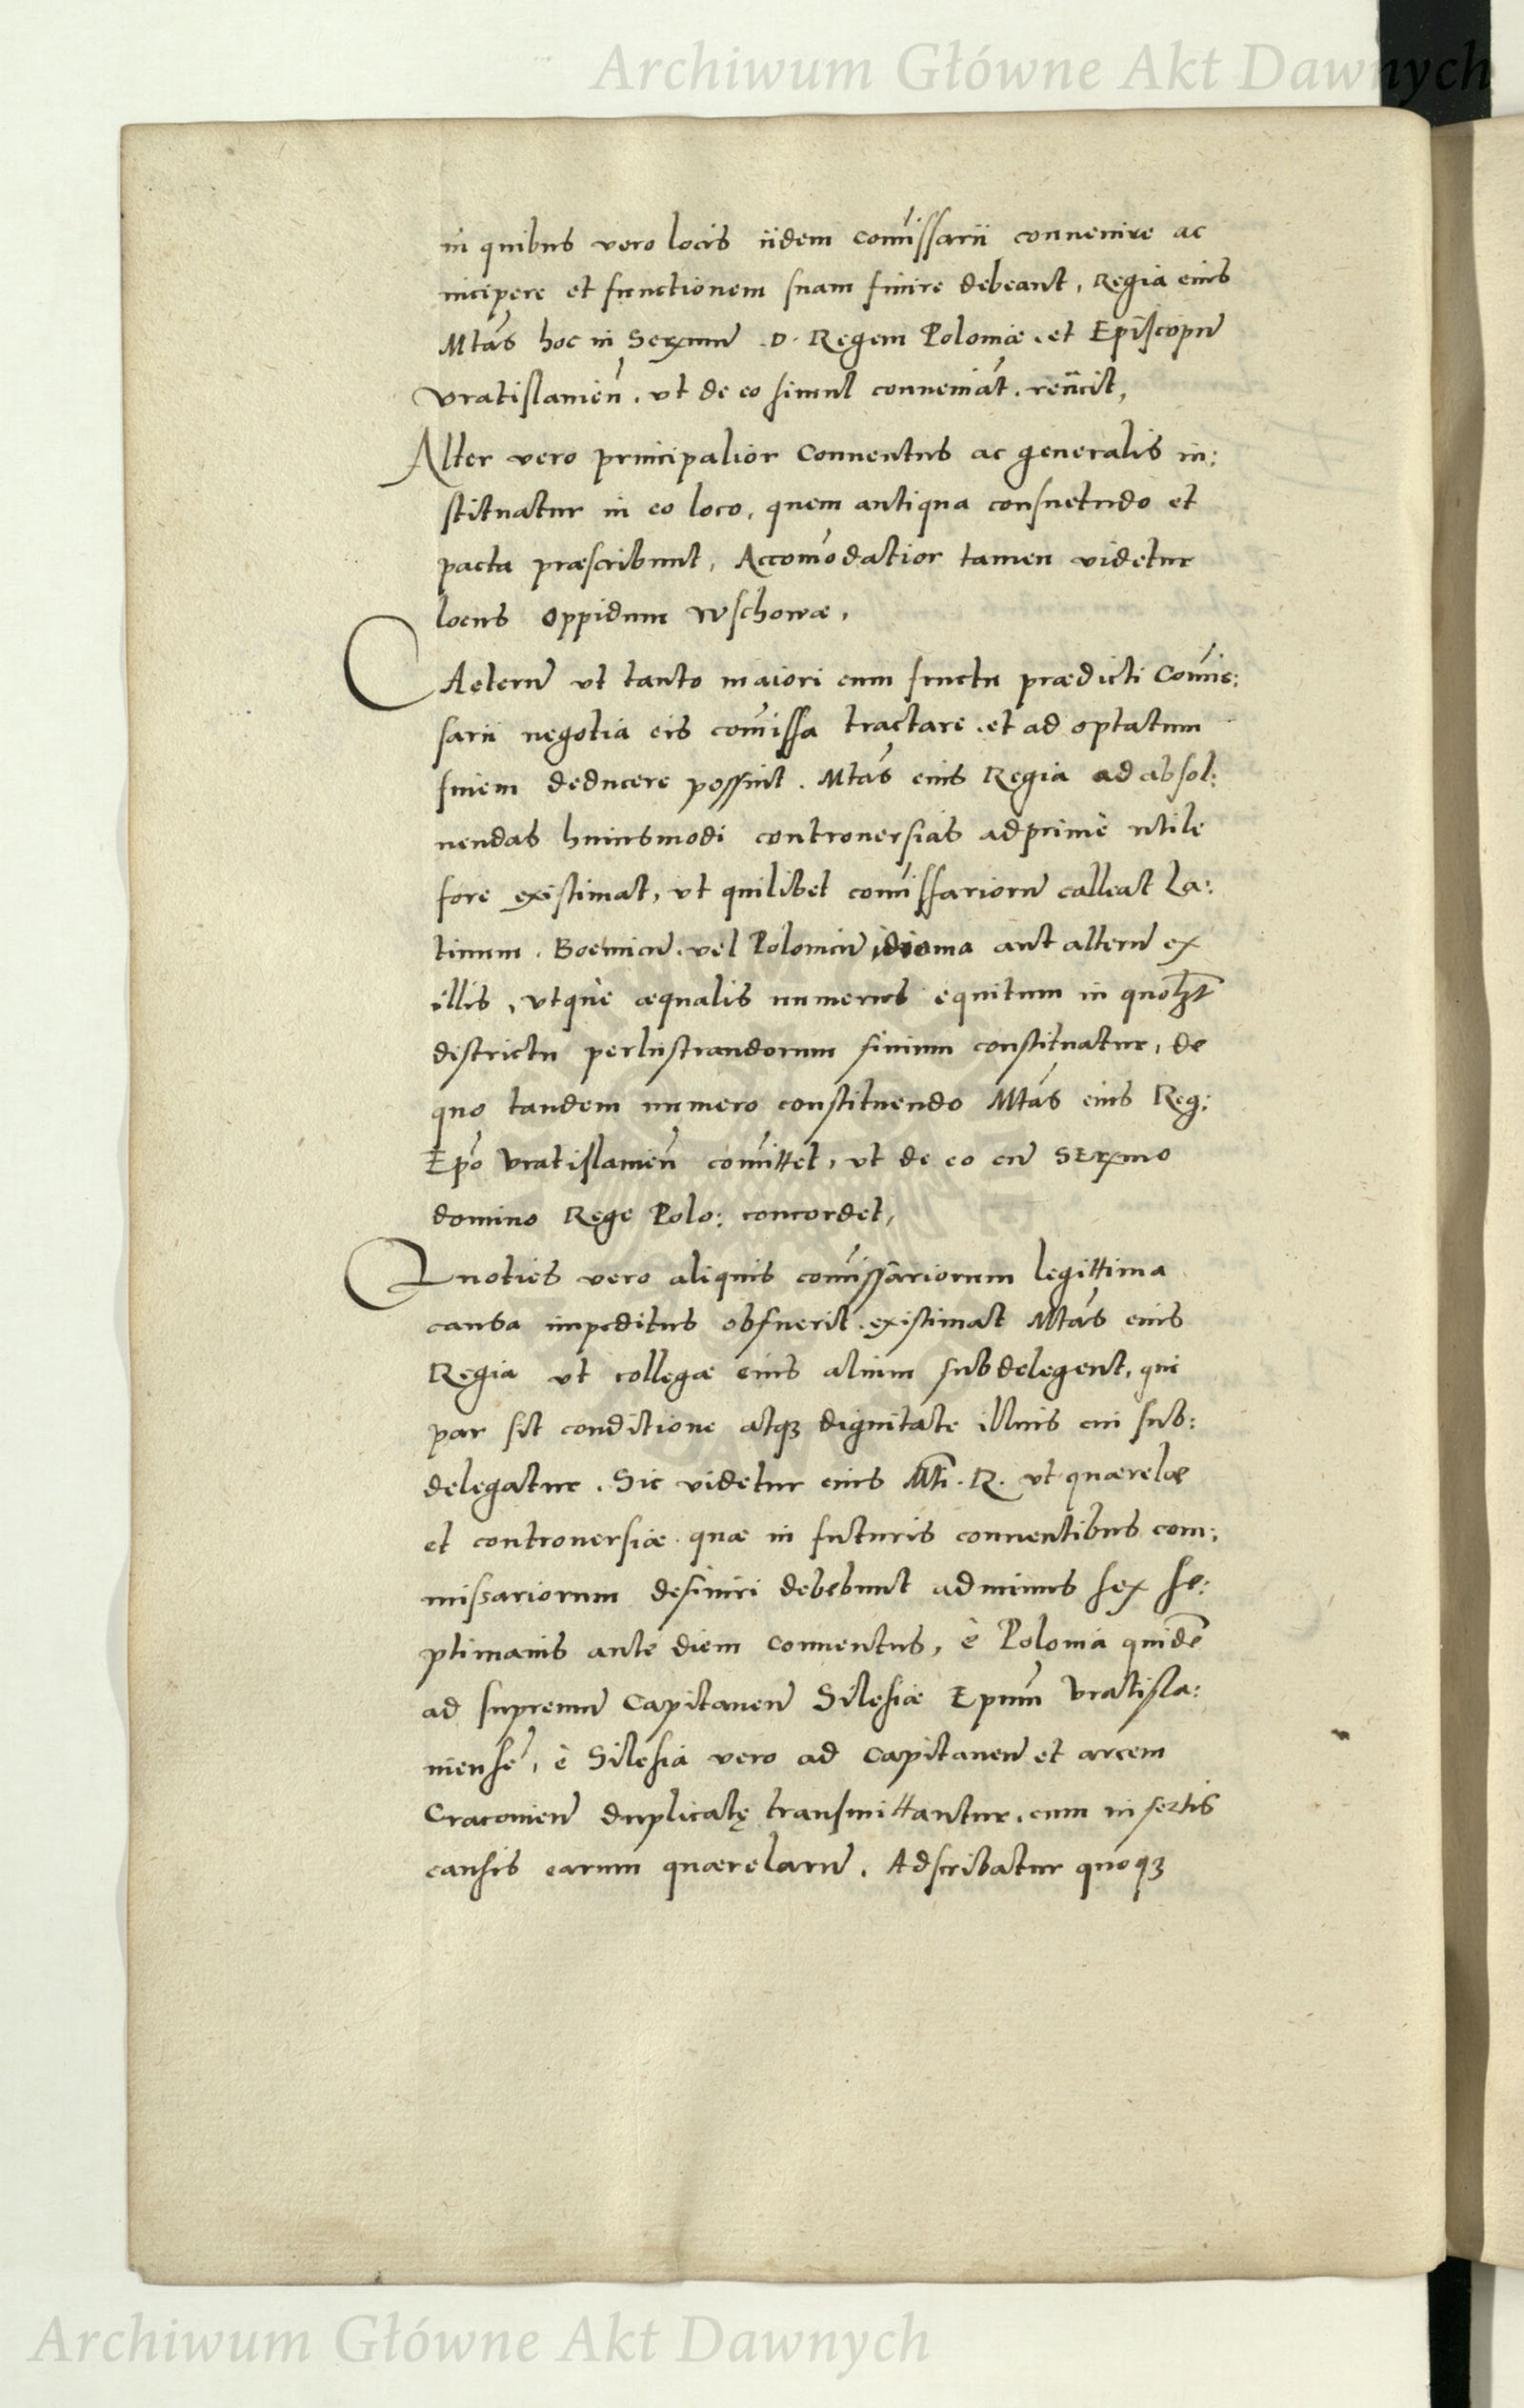 Archiwum Główne Akt Dawnych
in quibus vero locis iidem com̃issarii conuenire ac
incipere et functionem suam finire debeant, Regia eius
Mtás hoc in Serxmũ .D. Regem Poloniæ. et Episcopũ
Vratislauieñ. ut de eo simul conueniãt. reijcit,
Alter vero principalior Conuentus ac generalis in:
stituatur in eo loco, quem antiqua consuetudo et
pacta præscribunt, Accom̃odatior tamen videtur
locus Oppidum Wschowæ,
CAeterũ ut tanto maiori cum fructu prædicti Com̃is:
sarii negotia eis com̃issa tractare. et ad optatum
finem deducere possint. Mtás eius Regia ad absol:
uendas huiusmodi controuersias adprimè utile
fore existimat, ut quilibet com̃issariorũ calleat La:
tinum. Boemicũ. vel Polonicũ idioma aut alterũ ex
illis, utquè æqualis numerus equitum in quolȝt
districtu perlustrandorum finium constituatur, de
quo tandem numero constituendo Mtás eius Reg:
Epõ Vratislauieñ com̃ittet, ut de eo cũ SErxmo
domino Rege Polo: concordet,
Quoties vero aliquis com̃issariorum legittima
causa impeditus obfuerit. existimat Mtás eius
Regia ut collegæ eius alium subdelegent, qui
par sit conditione atqȝ dignitate illius cui sub:
delegatur. Sic videtur eius Mti. R. ut quærelæ
et controuersiæ quæ in futuris conuentibus com:
missariorum definiri debebunt adminus sex se:
ptimanis ante diem conuentus, è Polonia quidẽ
ad supremũ Capitaneũ Silesiæ Epum̃ Vratisla:
uiensẽ, è Silesia vero ad Capitaneũ et arcem
Cracouieñ duplicatę transmittantur, cum insertis
causis earum quærelarũ. Adscribatur quoqȝ
Archiwum Główne Akt Dawnych